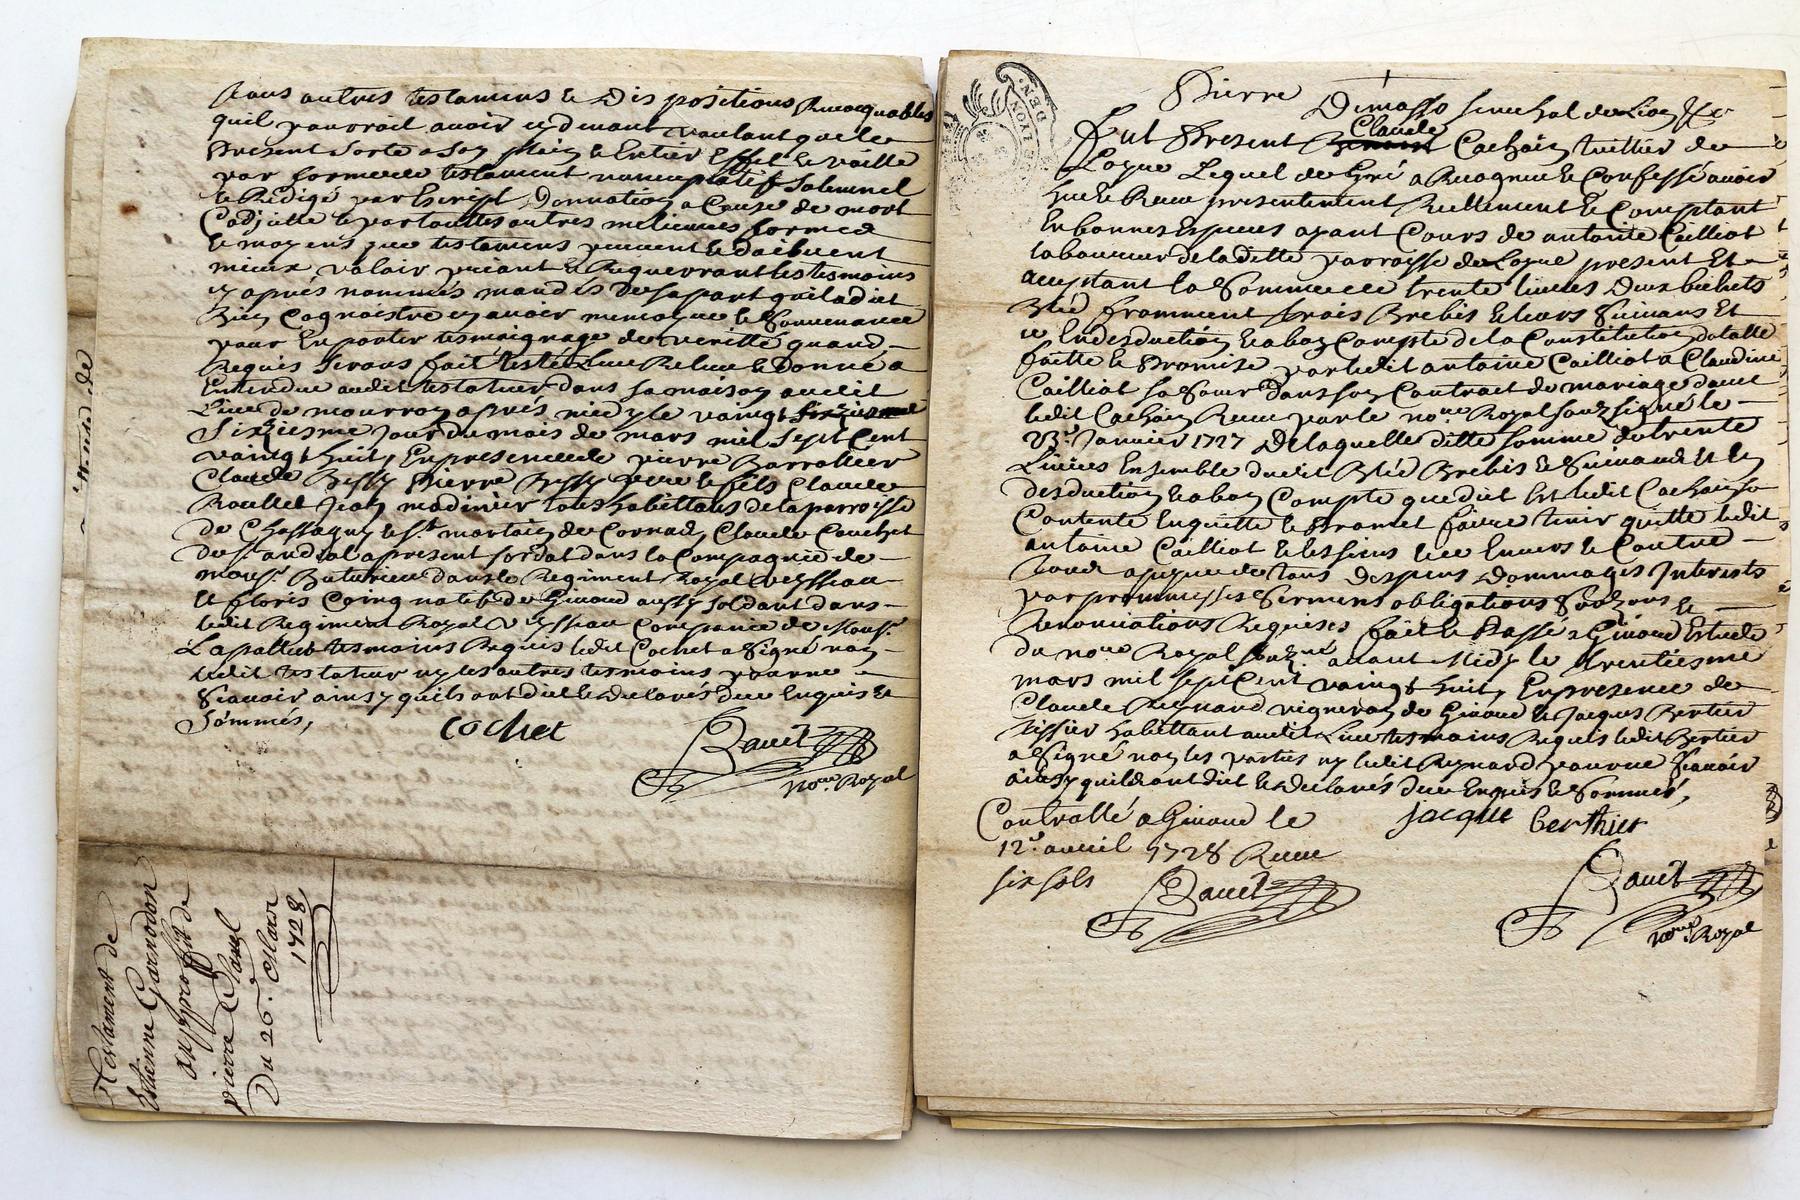 tous autres testamens & Dispositions Revocquables
quil pourroit avoir cy devant voulant que le
present sorte a son plain & Entier Effet & vaille
par forme de testament nuncupatif solemnel
& Redigé par Escript, Donnation a Cause de mort
Codicille & par touttes autres melieures formes
& moyens que testamens peuvent & doibvent
mieux valoir priant & Requerrant les tesmoins
cy aprés nommés mandés de sa part quil a dit
Bien Cognoistre en avoir memoyre & Souvenance
pour En porter tesmoignage de veritté quand
Requis seront fait
Entendue audit testateur dans sa maison audit
Lieu de mourron aprés midy le vaingt
Sixziesme jour du mois de mars mil sept Cent
vaingt huit, En presence de pierre Barrallier
Claude Bessy pierre Bessy pere & fils Claude
Roullet Jean madinier tous habittans de la parroisse
de Chassagny & St. martain de Cornas, Claude Couchet
de St. andial a present soldat dans la Compagnie de
mousr. dans le Regiment Royal veyssau
& floris natif de Givord aussy soldant dans
ledit Regiment Royal veyssau Compagnie de Mousr.
Lapallu tesmoins Requis ledit Cochet a signé non
ledit testateur ny les autres tesmoins pour ne
Sçavoir ainsy quils ont dit & declarés de ce Enquis &
Sommés,
cochet
noire. Royal
Testament de
Estienne Garnodon
au proffit de
pierre
Du 26e. Mars
1728
GEN. DE LYON
Pierre Dimasso senechal de Lion &c
Fut Present Claude Cachain tuillier de
Loyre Lequel de Gré a Recogneu & Confessé avoir
heu & Receu presentement Reellement & Comptant
En bonnes Especes ayant Cours de antoine Cailliot
laboureur de la ditte parroisse de Loyre present Et
acceptant la Somme de trente livres Deux bichets
Bled fromment trois Brebis & leurs Suivans Et
ce En desduction & a bon Compte de la Constitution dotalle
faitte & Promise par ledit antoine Cailliot a Claudine
Cailliot sa Sœur dans son Contract de mariage avec
ledit Cachain Receu par le noire Royal souzsigné le
23e. Janvier 1727 De laquelle ditte somme de trente
Livres Ensemble dudit Bled Brebis & Suivans Et En
desduction & a bon Compte que dit Est ledit Cachain se
Contente En quitte & Promet faire tenir quitte ledit
antoine Cailliot & les siens de ce Envers & Contre
tous a peyne de tous Despens Dommages Interests
par prommesses Sermens obligations Souzmis &
Renonciations Requises fait & Passé a Givord Estude
du noire Royal souzné avant Midy le trentiesme
mars mil sept Cent vaingt huit, En presence de
Claude Reynard vigneron de Givord & Jacques Bertier
tissier habittant audit Lieu tesmoins Requis ledit Bertier
a Signé non les parties ny ledit Reynard pour ne Sçavoir
ainsy quils ont dit & declarés de ce Enquis & Sommés,
Controllé a Givord le
12e. avril 1728 Receu
six sols
jacque berthier
noire. Royal